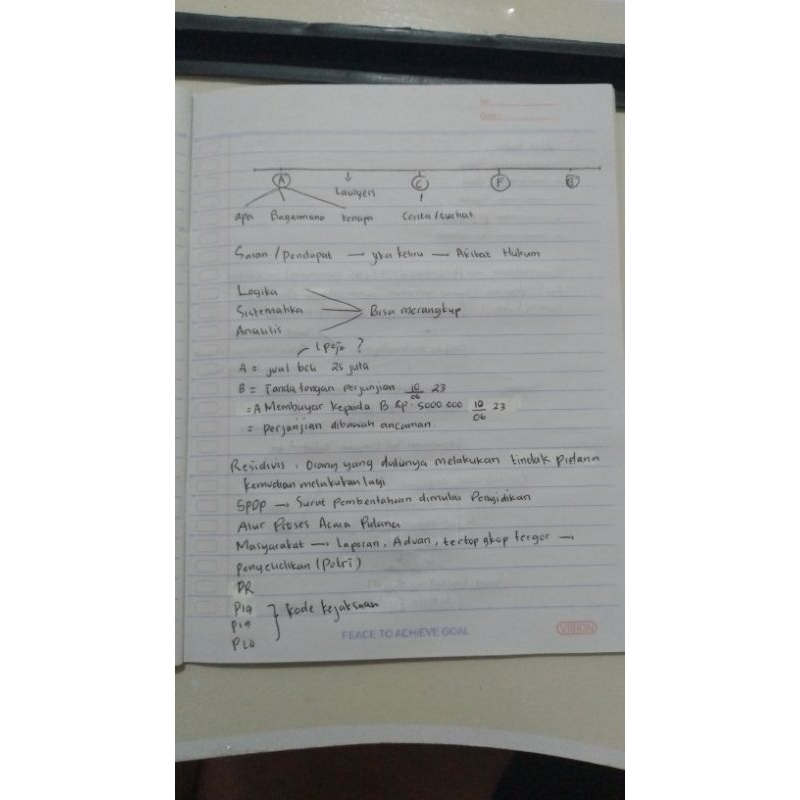 No:
Date:
A C F
Lawyers
apa Bagaimana kenapa Cerita / curhat
Saran / Pendapat — — Akibat Hukum
Logika
Sistematika Bisa merangkup
Analisis
?
A = jual beli 25 juta
B = Tanda tangan perjanjian 10/06 23
= A Membayar kepada B Rp. 5000.000 10/06 23
= perjanjian dibawah ancaman.
Residivis : Orang yang dulunya melakukan tindak pidana
kemudian melakukan lagi
SPDP → Surat Pemberitahuan dimulai Penyidikan
Alur Proses Acara Pidana
Masyarakat → Laporan, Aduan, →
penyelidikan (Polri)
PR
kode kejaksaan
PEACE TO ACHIEVE GOAL
VISION